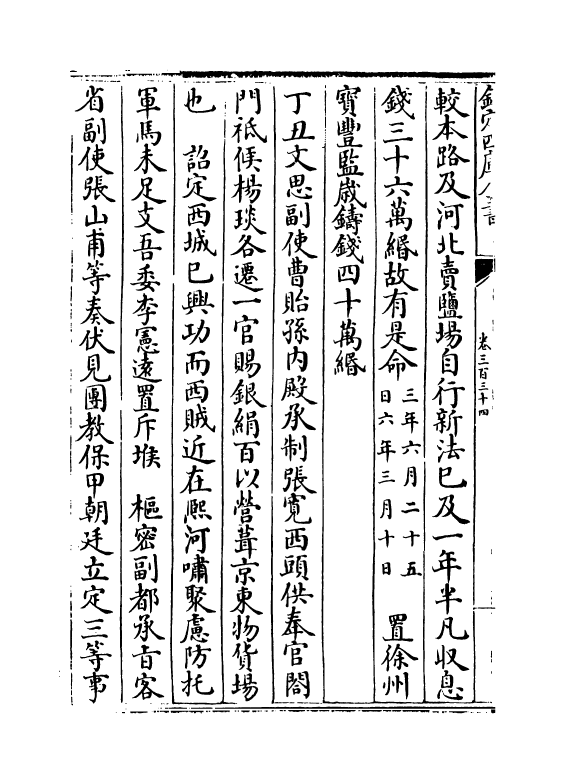 欽定四庫全書
卷三百三十四
較本路及河北賣鹽場自行新法已及一年半凡収息
錢三十六萬緡故有是命三年六月二十五日六年三月十日 置徐州
寳豐監歲鑄錢四十萬緡
丁丑文思副使曹貽孫内殿承制張寛西頭供奉官閤
門祗候楊琰各遷一官賜銀絹百以營葺京東物貨場
也 詔定西城已興功而西賊近在熈河嘯聚慮防托
軍馬未足支吾委李憲逺置斥堠 樞密副都承㫖客
省副使張山甫等奏伏見團教保甲朝廷立定三等事